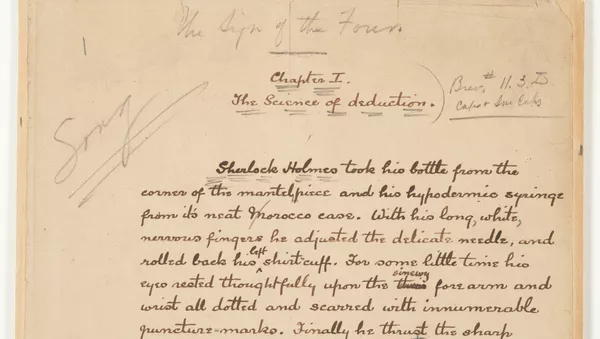 1
The Sign of the Four.
Chapter I.
The Science of deduction.
Brev. # 11.3.
Caps +
Song
Sherlock Holmes took his bottle from the
corner of the mantelpiece and his hypodermic syringe
from it's neat Morocco case. With his long, white,
nervous fingers he adjusted the delicate needle, and
rolled back his left shirtcuff. For some little time his
eyes rested thoughtfully upon the sinewy forearm and
wrist all dotted and scarred with innumerable
puncture-marks. Finally he thrust the sharp